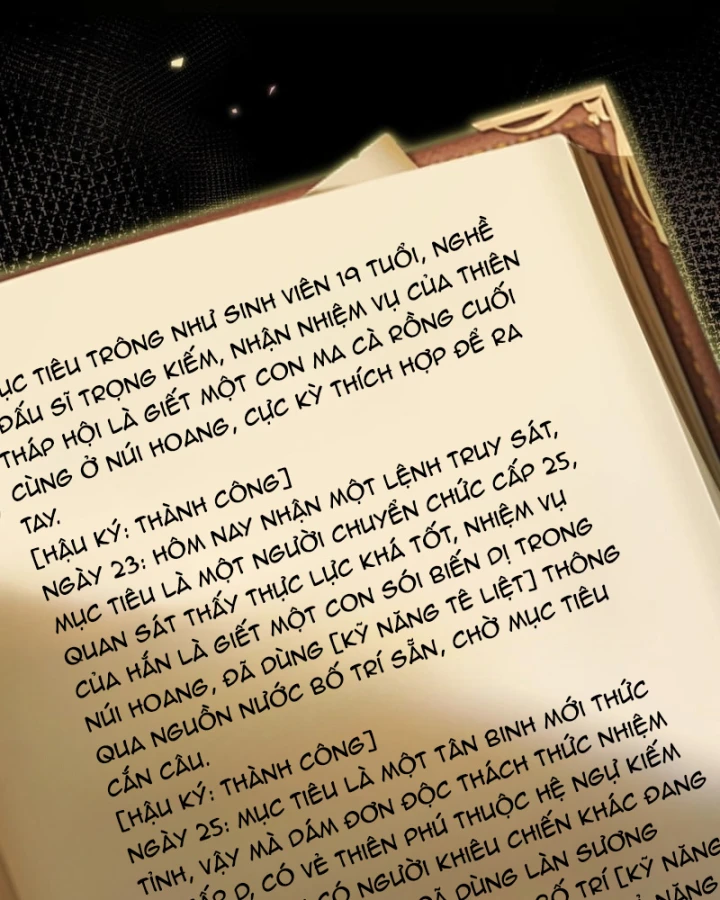 ỤC TIÊU TRÔNG NHƯ SINH VIÊN 19 TUỔI, NGHỀ
ĐẤU SĨ TRỌNG KIẾM, NHẬN NHIỆM VỤ CỦA THIÊN
THÁP HỘI LÀ GIẾT MỘT CON MA CÀ RỒNG CUỐI
CÙNG Ở NÚI HOANG, CỰC KỲ THÍCH HỢP ĐỂ RA
TAY.
[HẬU KÝ: THÀNH CÔNG]
NGÀY 23: HÔM NAY NHẬN MỘT LỆNH TRUY SÁT,
MỤC TIÊU LÀ MỘT NGƯỜI CHUYỂN CHỨC CẤP 25,
QUAN SÁT THẤY THỰC LỰC KHÁ TỐT, NHIỆM VỤ
CỦA HẮN LÀ GIẾT MỘT CON SÓI BIẾN DỊ TRONG
NÚI HOANG, ĐÃ DÙNG [KỸ NĂNG TÊ LIỆT] THÔNG
QUA NGUỒN NƯỚC BỐ TRÍ SẴN, CHỜ MỤC TIÊU
CẮN CÂU.
[HẬU KÝ: THÀNH CÔNG]
NGÀY 25: MỤC TIÊU LÀ MỘT TÂN BINH MỚI THỨC
TỈNH, VẬY MÀ DÁM ĐƠN ĐỘC THÁCH THỨC NHIỆM
D, CÓ VẺ THIÊN PHÚ THUỘC HỆ NGỰ KIẾM
CÓ NGƯỜI KHIÊU CHIẾN KHÁC ĐANG
ĐÃ DÙNG LÀN SƯƠNG
BỐ TRÍ [KỸ NĂNG